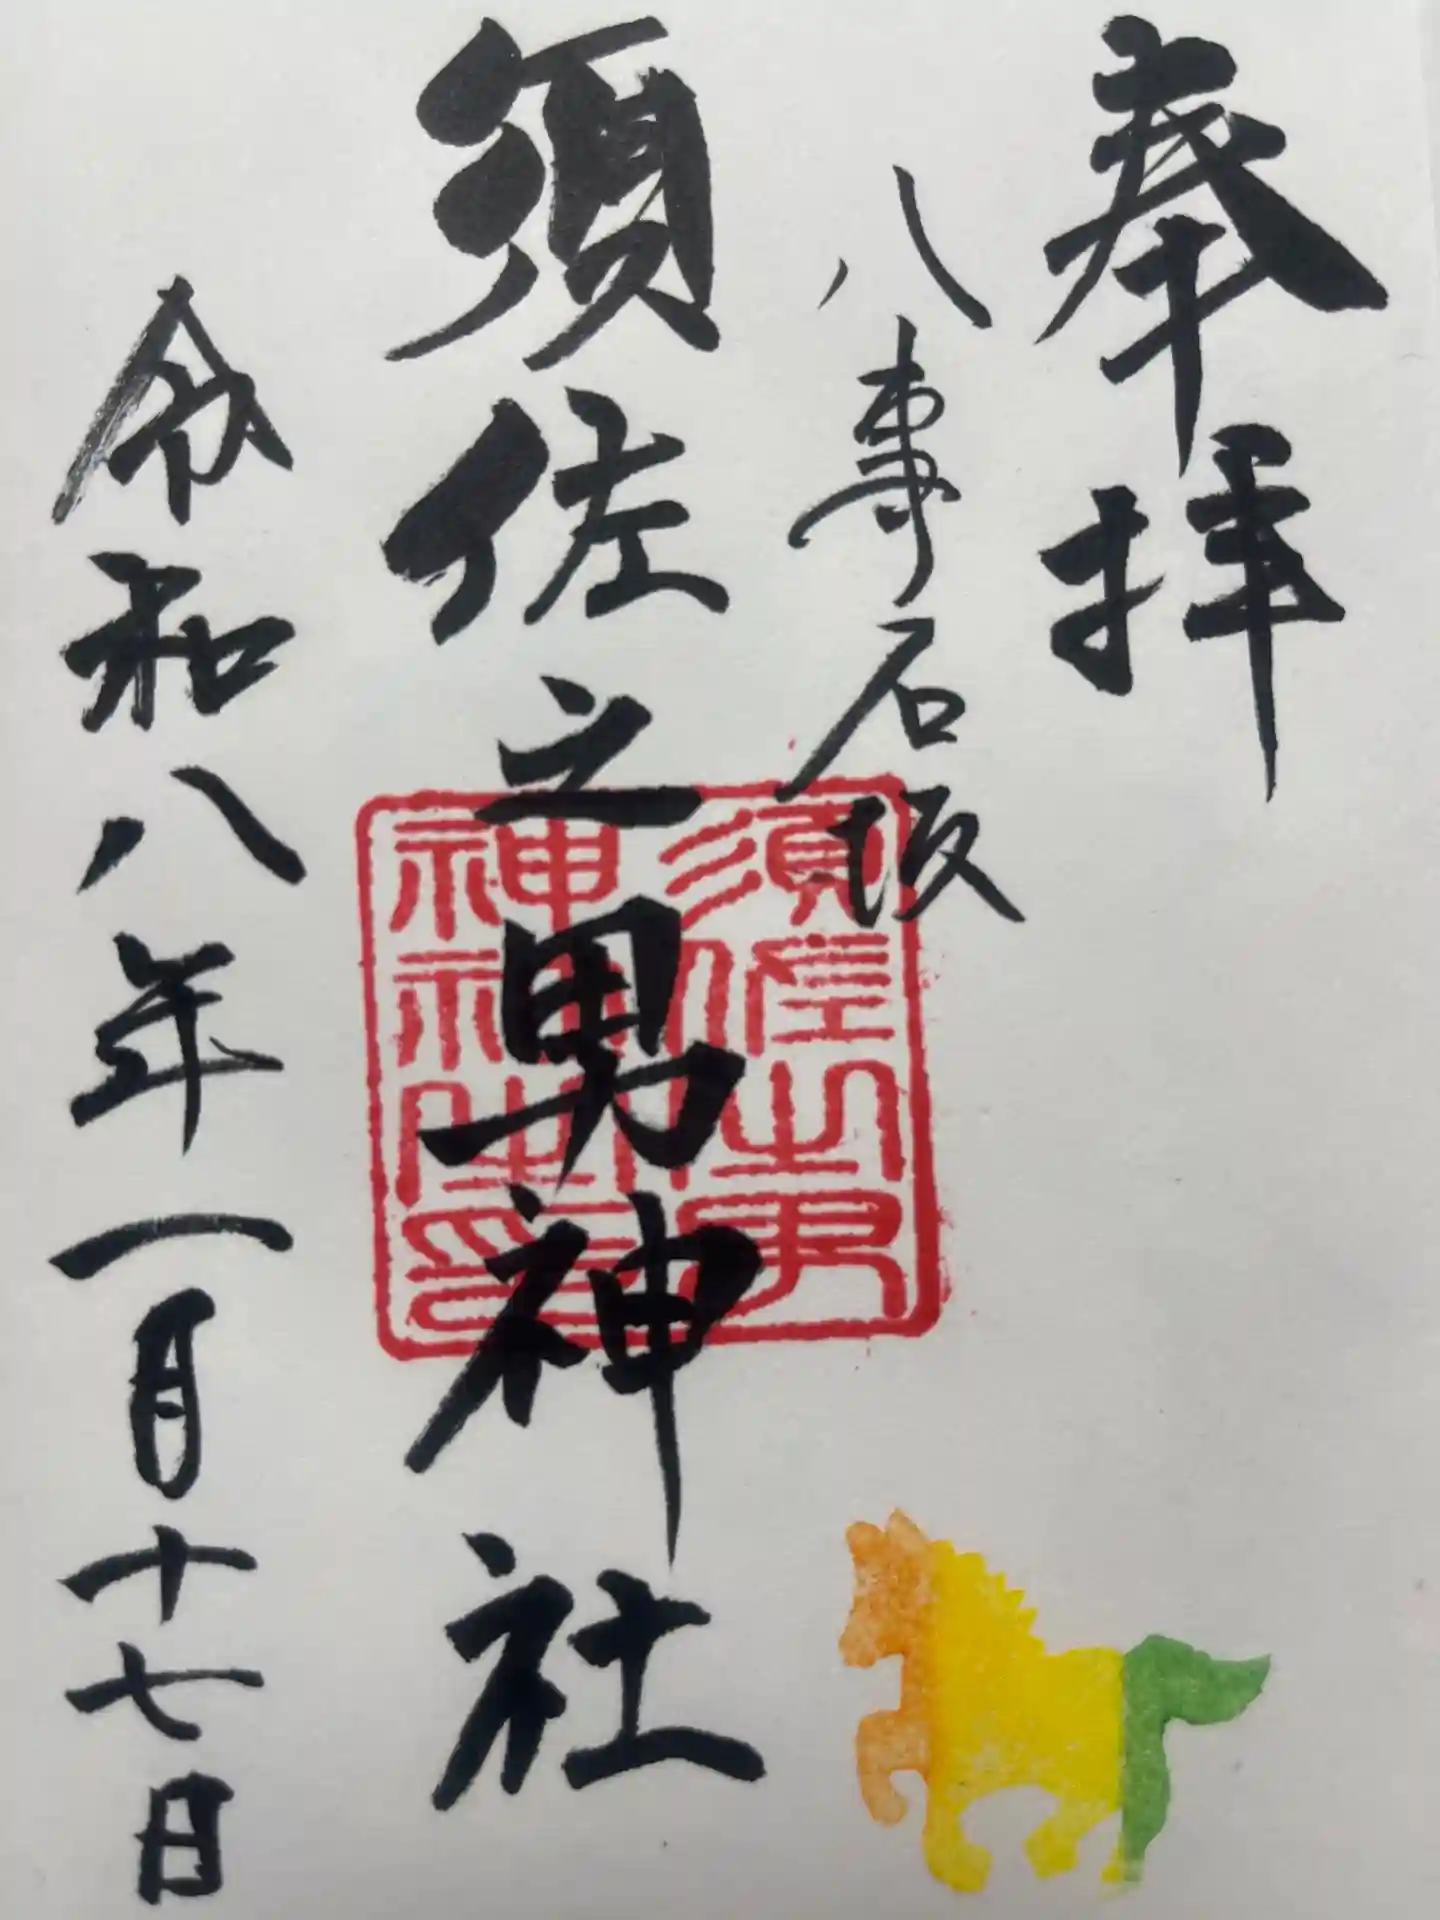 奉拝
八事石坂
須佐之男神社
須佐之男
神社之印
令和八年一月十七日